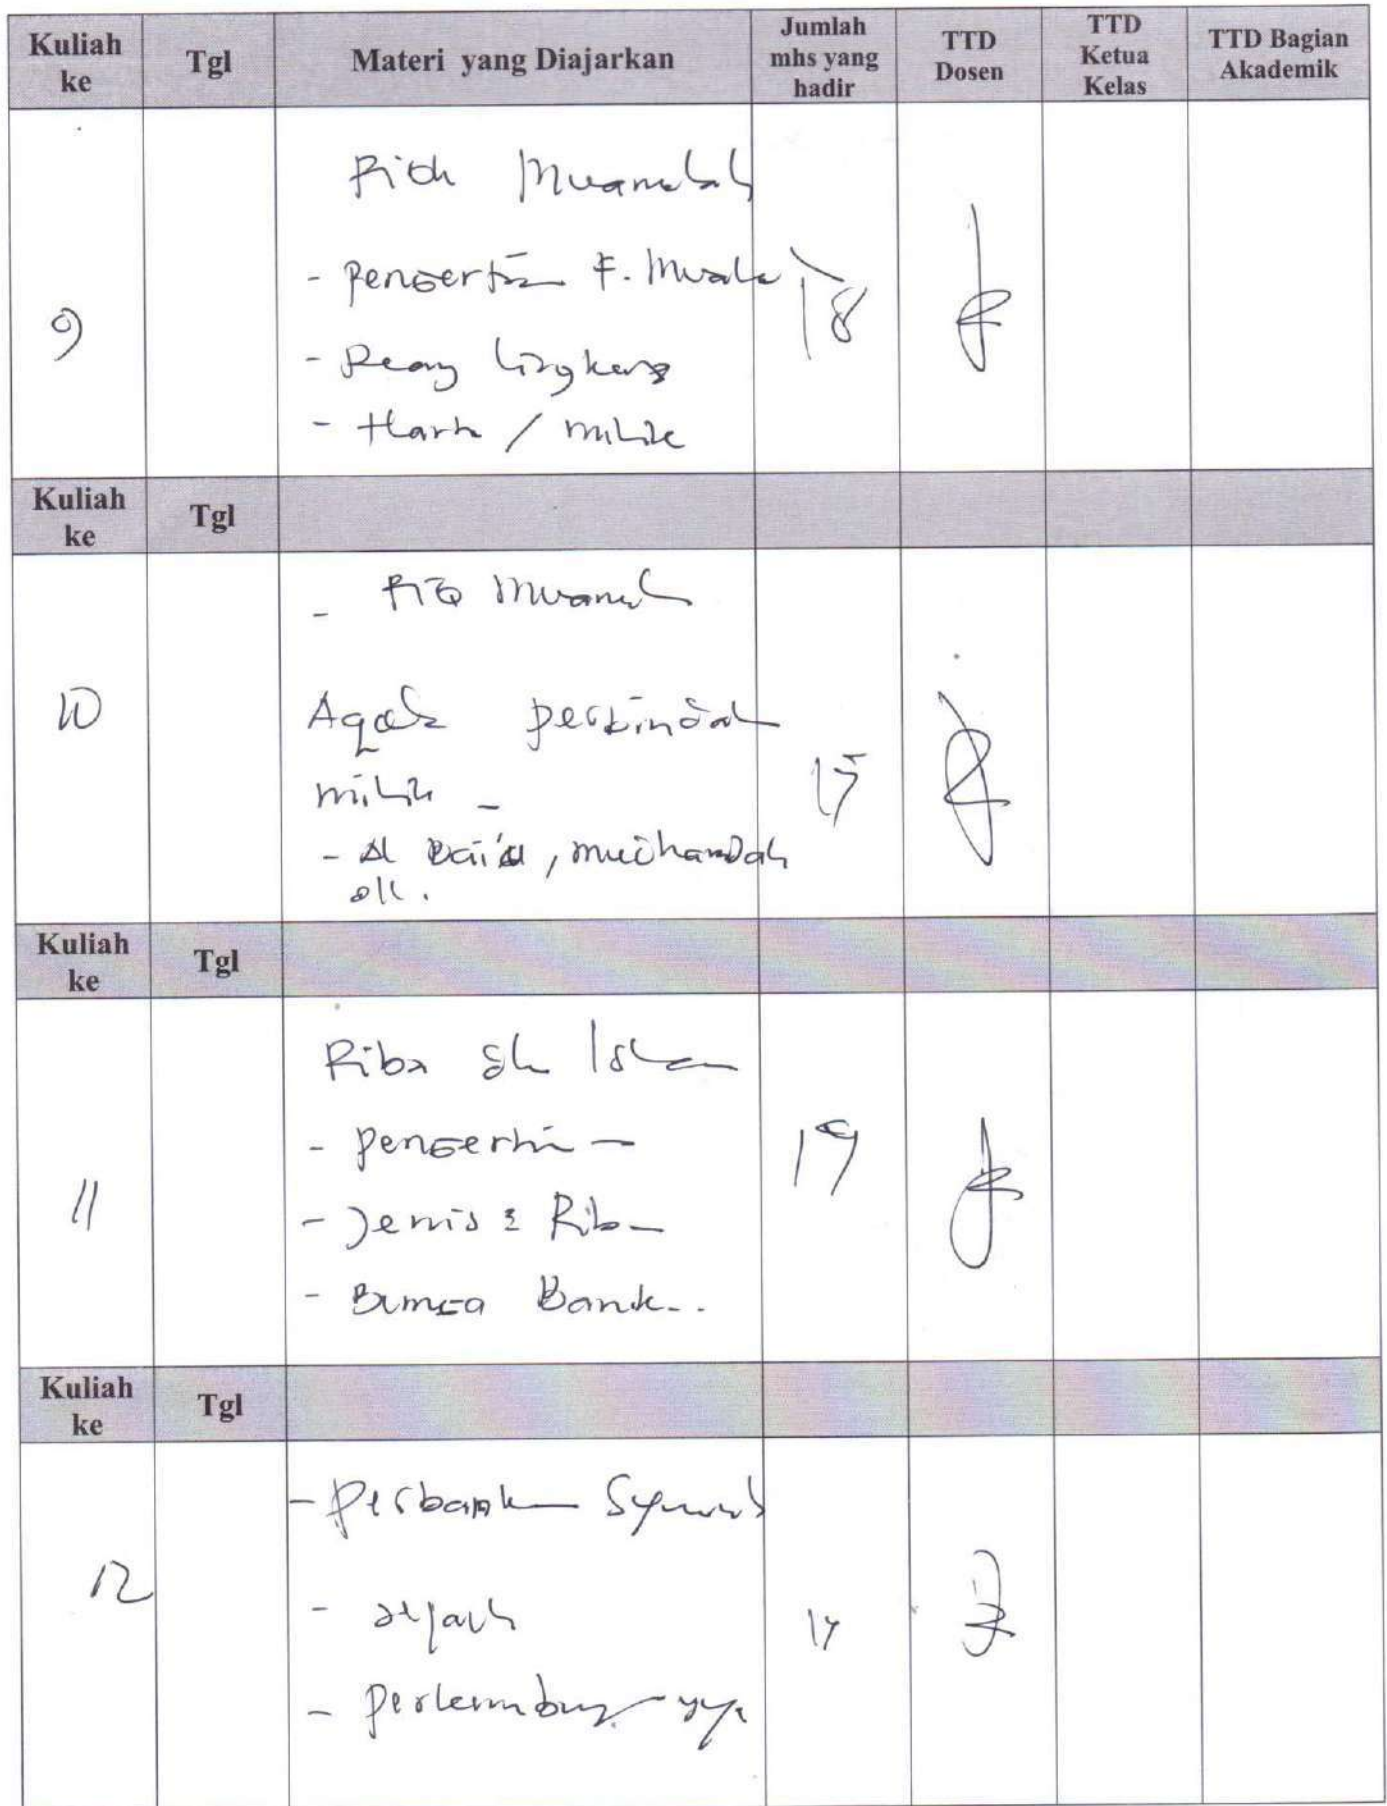 Kuliah ke Tgl Materi yang Diajarkan Jumlah mhs yang hadir TTD Dosen TTD Ketua Kelas TTD Bagian Akademik
Fiqh Muamalah
- Pengertian F. Muala
9 18
- Ruang lingkup
- Harta / milik
Kuliah ke Tgl
- Fiq Muamalah
10 Aqad perpindah
milik -
- Al Bai'u, mudharabah
dll.
Kuliah ke Tgl
Riba dlm Islam
- Pengertian 19
11 - Jenis2 Riba
- Bunga Bank..
Kuliah ke Tgl
- Perbankan Syariah
12 - sejarah
- Perkembangannya